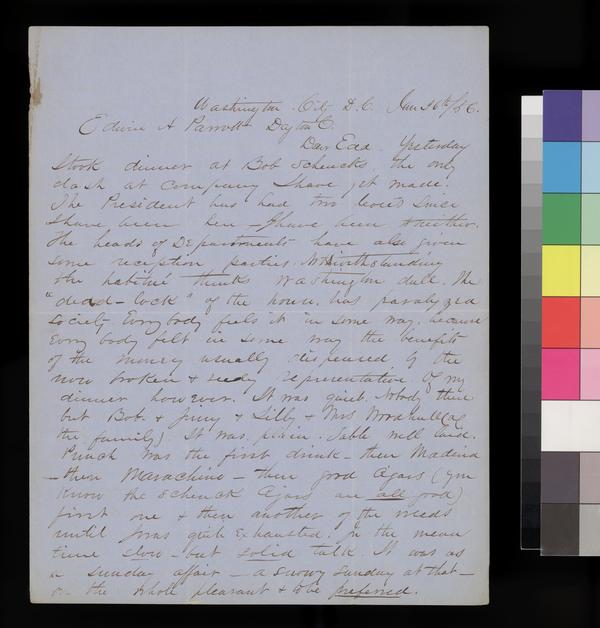 Washington City D.C. Jan 26th/56.
Edwin A Parrott Dayton O.
Dear Edd. Yesterday
I took dinner at Bob Schencks the only
dash at company I have yet made.
The President has had two levees since
I have been here — I have been to neither.
The heads of Departments have also given
some reception parties. Notwithstanding
the habitué thinks Washington dull. The
"dead-lock" of the house, has paralyzed
society. Every body feels it in some way, because
Every body felt in some way the benefits
of the money usually dispensed by the
now broken & seedy representative. Of my
dinner however. It was quiet. Nobody there
but Bob & Jinny & Lilly & Mrs Woodhull (all
the family). It was plain. Table well laid.
Punch was the first drink — then Madeira
— then Marachino — then good cigars (you
know the Schenck cigars are all good)
first one & then another of the weeds
until I was quite exhausted. In the mean
time slow — but solid talk. It was as
a sunday affair — a snowy sunday at that —
on the whole pleasant & to be preferred.